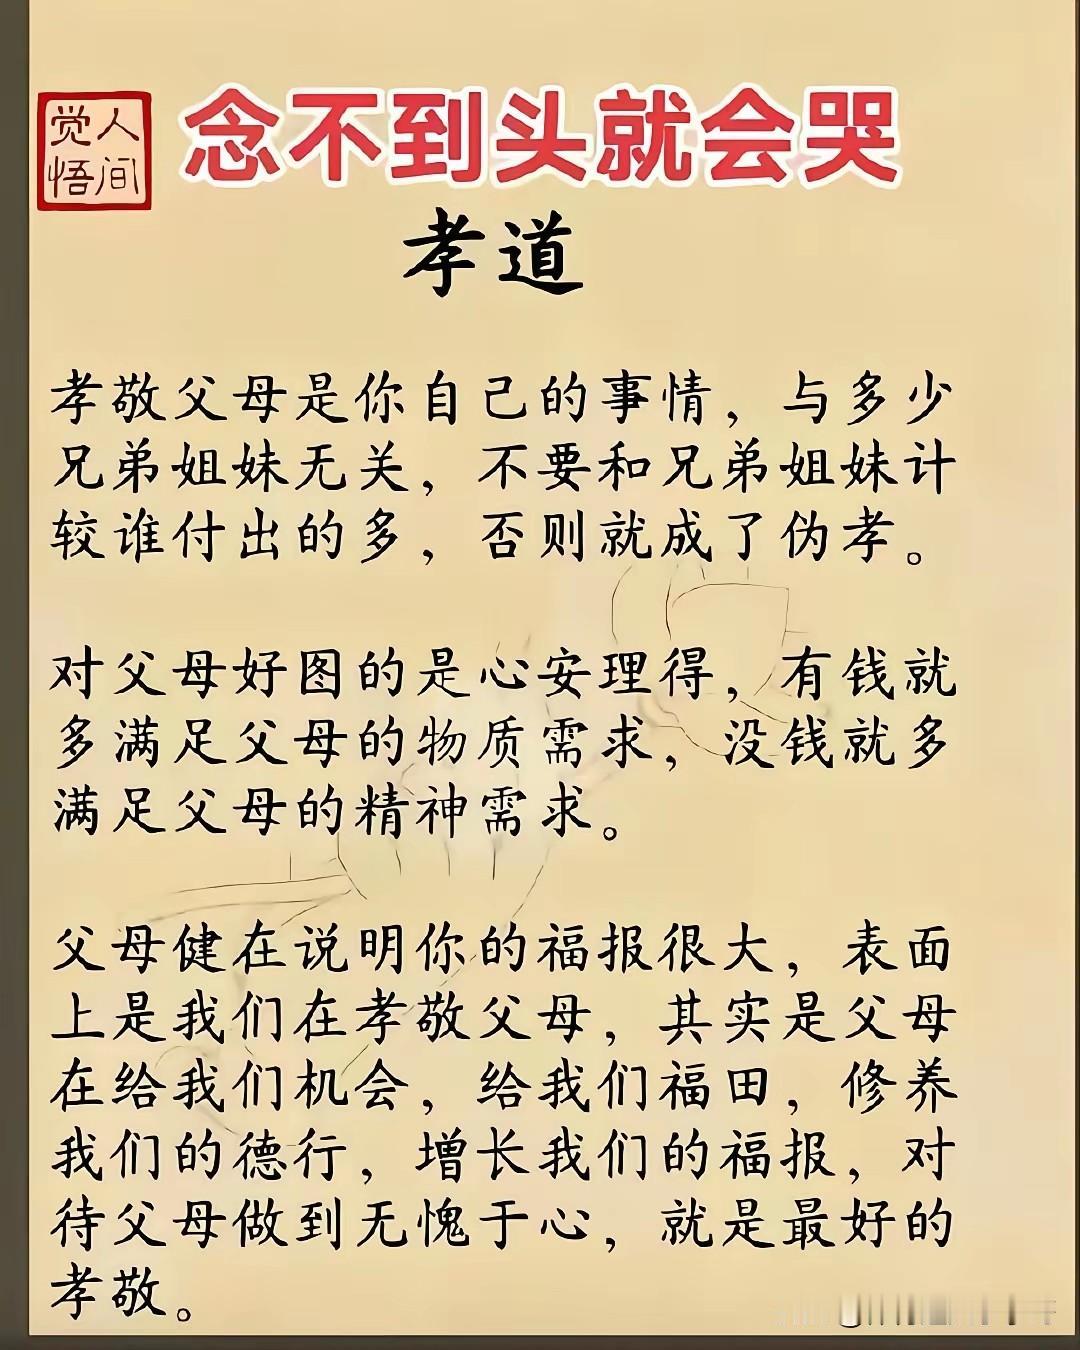 人间
觉悟
念不到头就会哭
孝道
孝敬父母是你自己的事情，与多少
兄弟姐妹无关，不要和兄弟姐妹计
较谁付出的多，否则就成了伪孝。
对父母好图的是心安理得，有钱就
多满足父母的物质需求，没钱就多
满足父母的精神需求。
父母健在说明你的福报很大，表面
上是我们在孝敬父母，其实是父母
在给我们机会，给我们福田，修养
我们的德行，增长我们的福报，对
待父母做到无愧于心，就是最好的
孝敬。